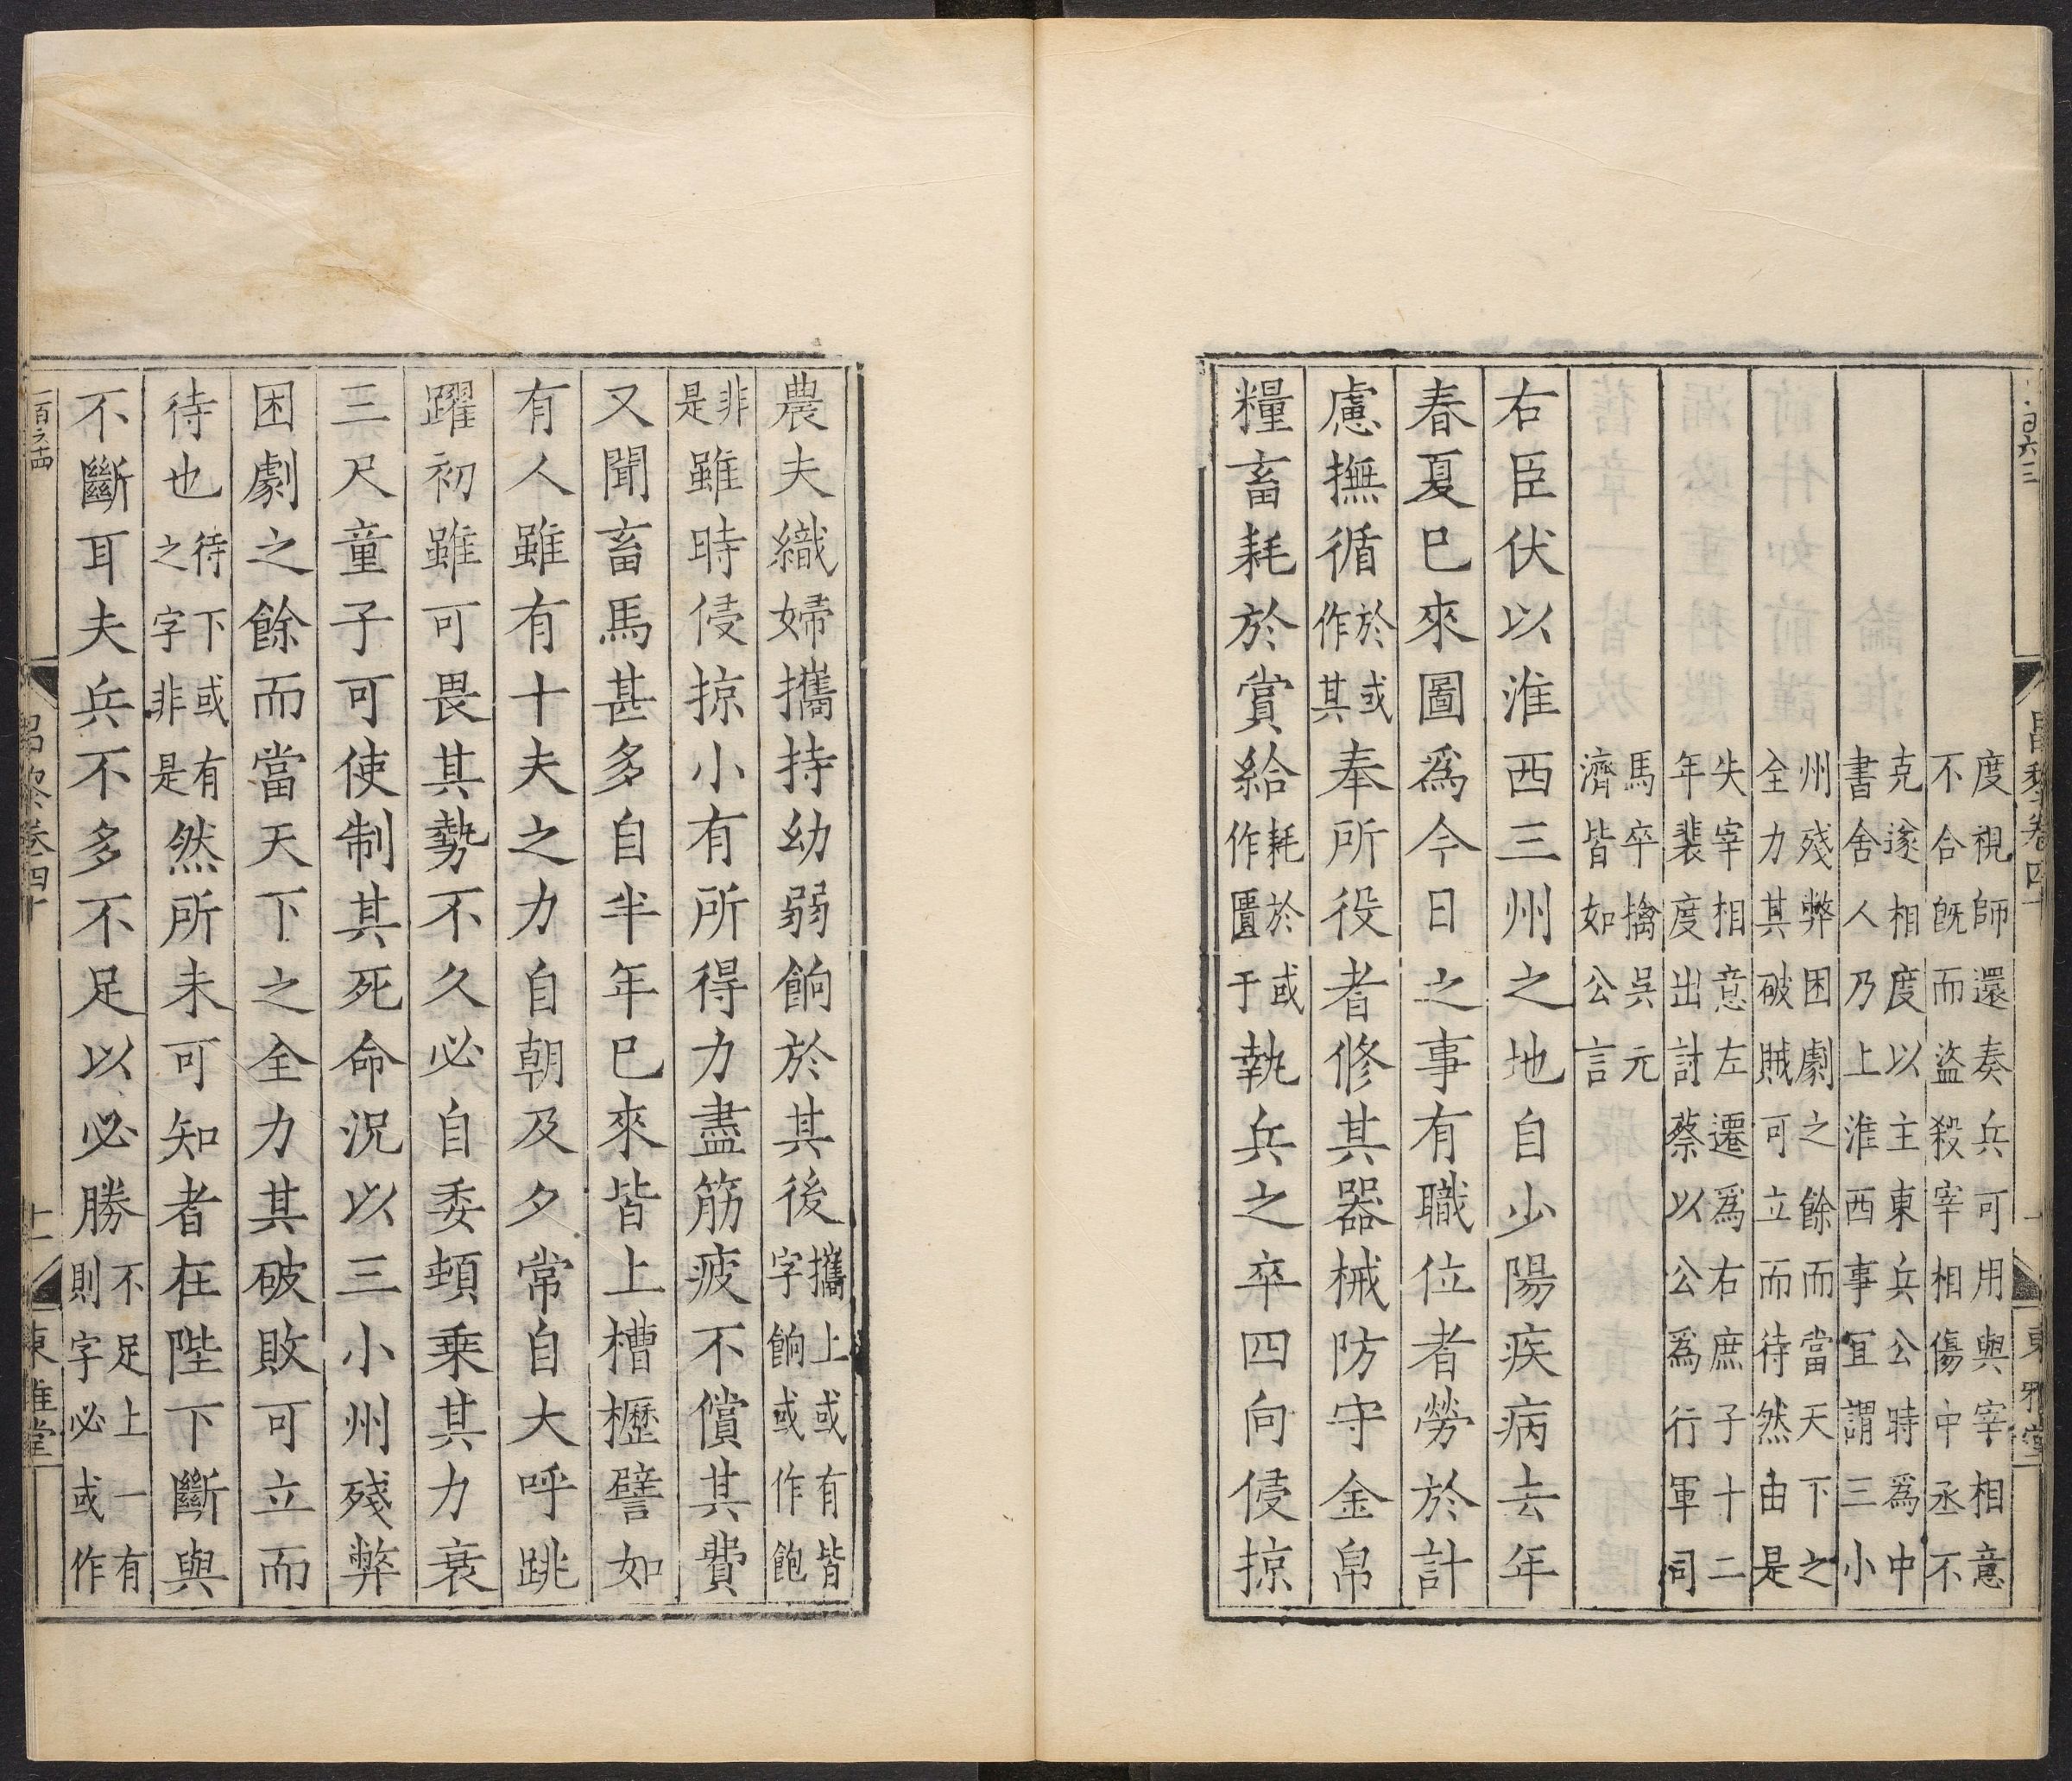 度視師還奏兵可用與宰相意
不合旣而盜殺宰相傷中丞不
克遂相度以主東兵公時爲中
書舍人乃上淮西事宜謂三小
州殘弊困劇之餘而當天下之
全力其破賊可立而待然由是
失宰相意左遷爲右庶子十二
年裴度出討蔡以公爲行軍司
馬卒擒吳元
濟皆如公言
右臣伏以淮西三州之地自少陽疾病去年
春夏已來圖爲今日之事有職位者勞於計
慮撫循於或作其奉所役者修其器械防守金帛
糧畜耗於賞給耗於或作匱于執兵之卒四向侵掠
昌黎卷四十
東雅堂
農夫織婦攜持幼弱餉於其後攜上或有皆字餉或作飽
非是雖時侵掠小有所得力盡筋疲不償其費
又聞畜馬甚多自半年已來皆上槽櫪譬如
有人雖有十夫之力自朝及夕常自大呼跳
躍初雖可畏其勢不久必自委頓乗其力衰
三尺童子可使制其死命況以三小州殘弊
困劇之餘而當天下之全力其破敗可立而
待也待下或有之字非是然所未可知者在陛下斷與
不斷耳夫兵不多不足以必勝不足上一有則字必或作
昌黎卷四十
東雅堂